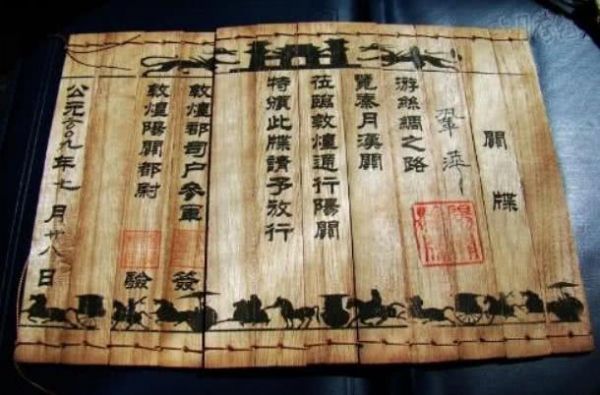 關牒
游絲綢之路
覽秦月漢關
莅臨敦煌通行陽關
特頒此牒請予放行
敦煌郡司户參軍 簽
敦煌陽關都尉 驗
公元二〇〇九年七月廿八日